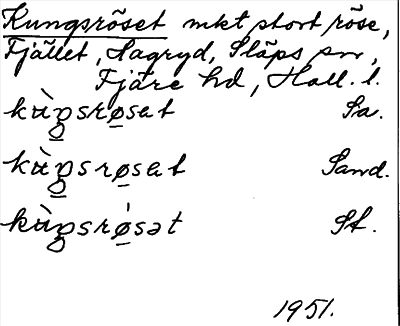 Kungsröset mkt stort röse,
Fjället, Hagryd, Släps sn,
Fjäre hd, Hall. l.
kùŋsrøsət Sa.
kùŋsrøsət Sand.
kùŋsrø̍sət St.
1951.